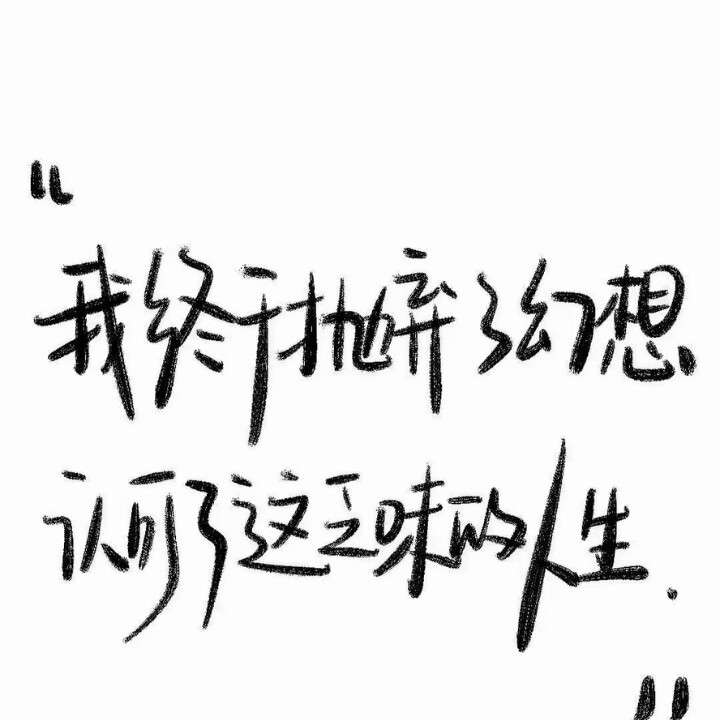 “我终于抛弃了幻想
认可了这乏味的人生.”